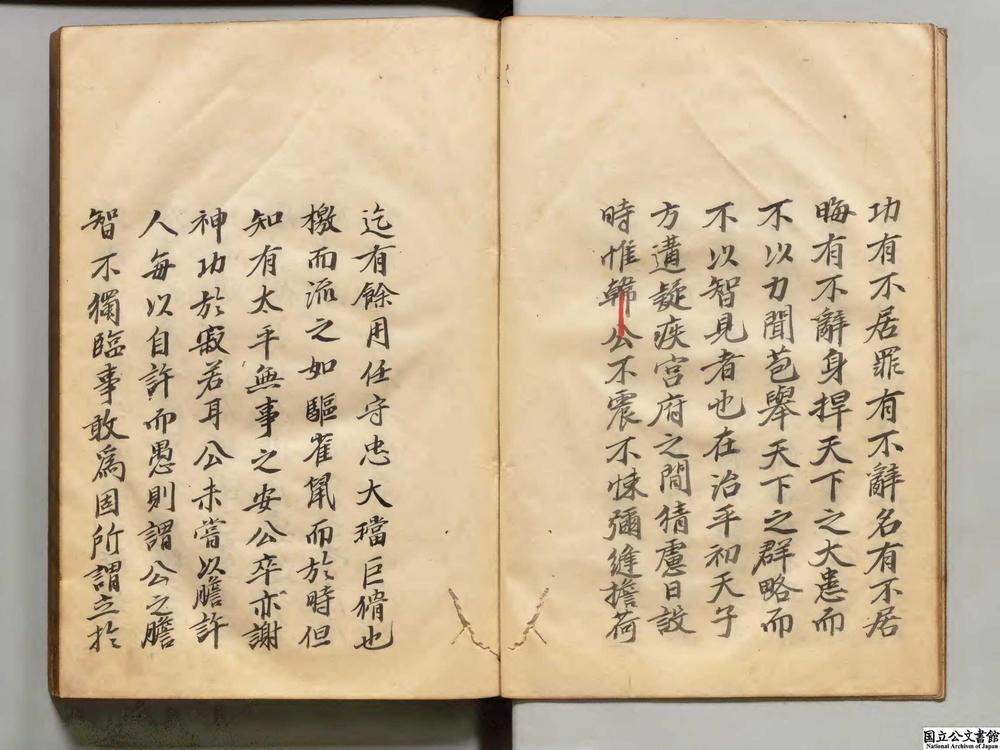 功有不居罪有不辭名有不居
晦有不辭身捍天下之大患而
不以力聞苞舉天下之群略而
不以智見者也在治平初天子
方遘疑疾宮府之間猜慮日設
時惟韓公不震不悚彌縫擔荷
迄有餘用任守忠大璫巨猾也
檄而流之如驅雀鼠而於時但
知有太平無事之安公卒亦謝
神功於寂若耳公未嘗以膽許
人每以自許而愚則謂公之膽
智不獨臨事敢為固所謂立於
国立公文書館
National Archives of Japan